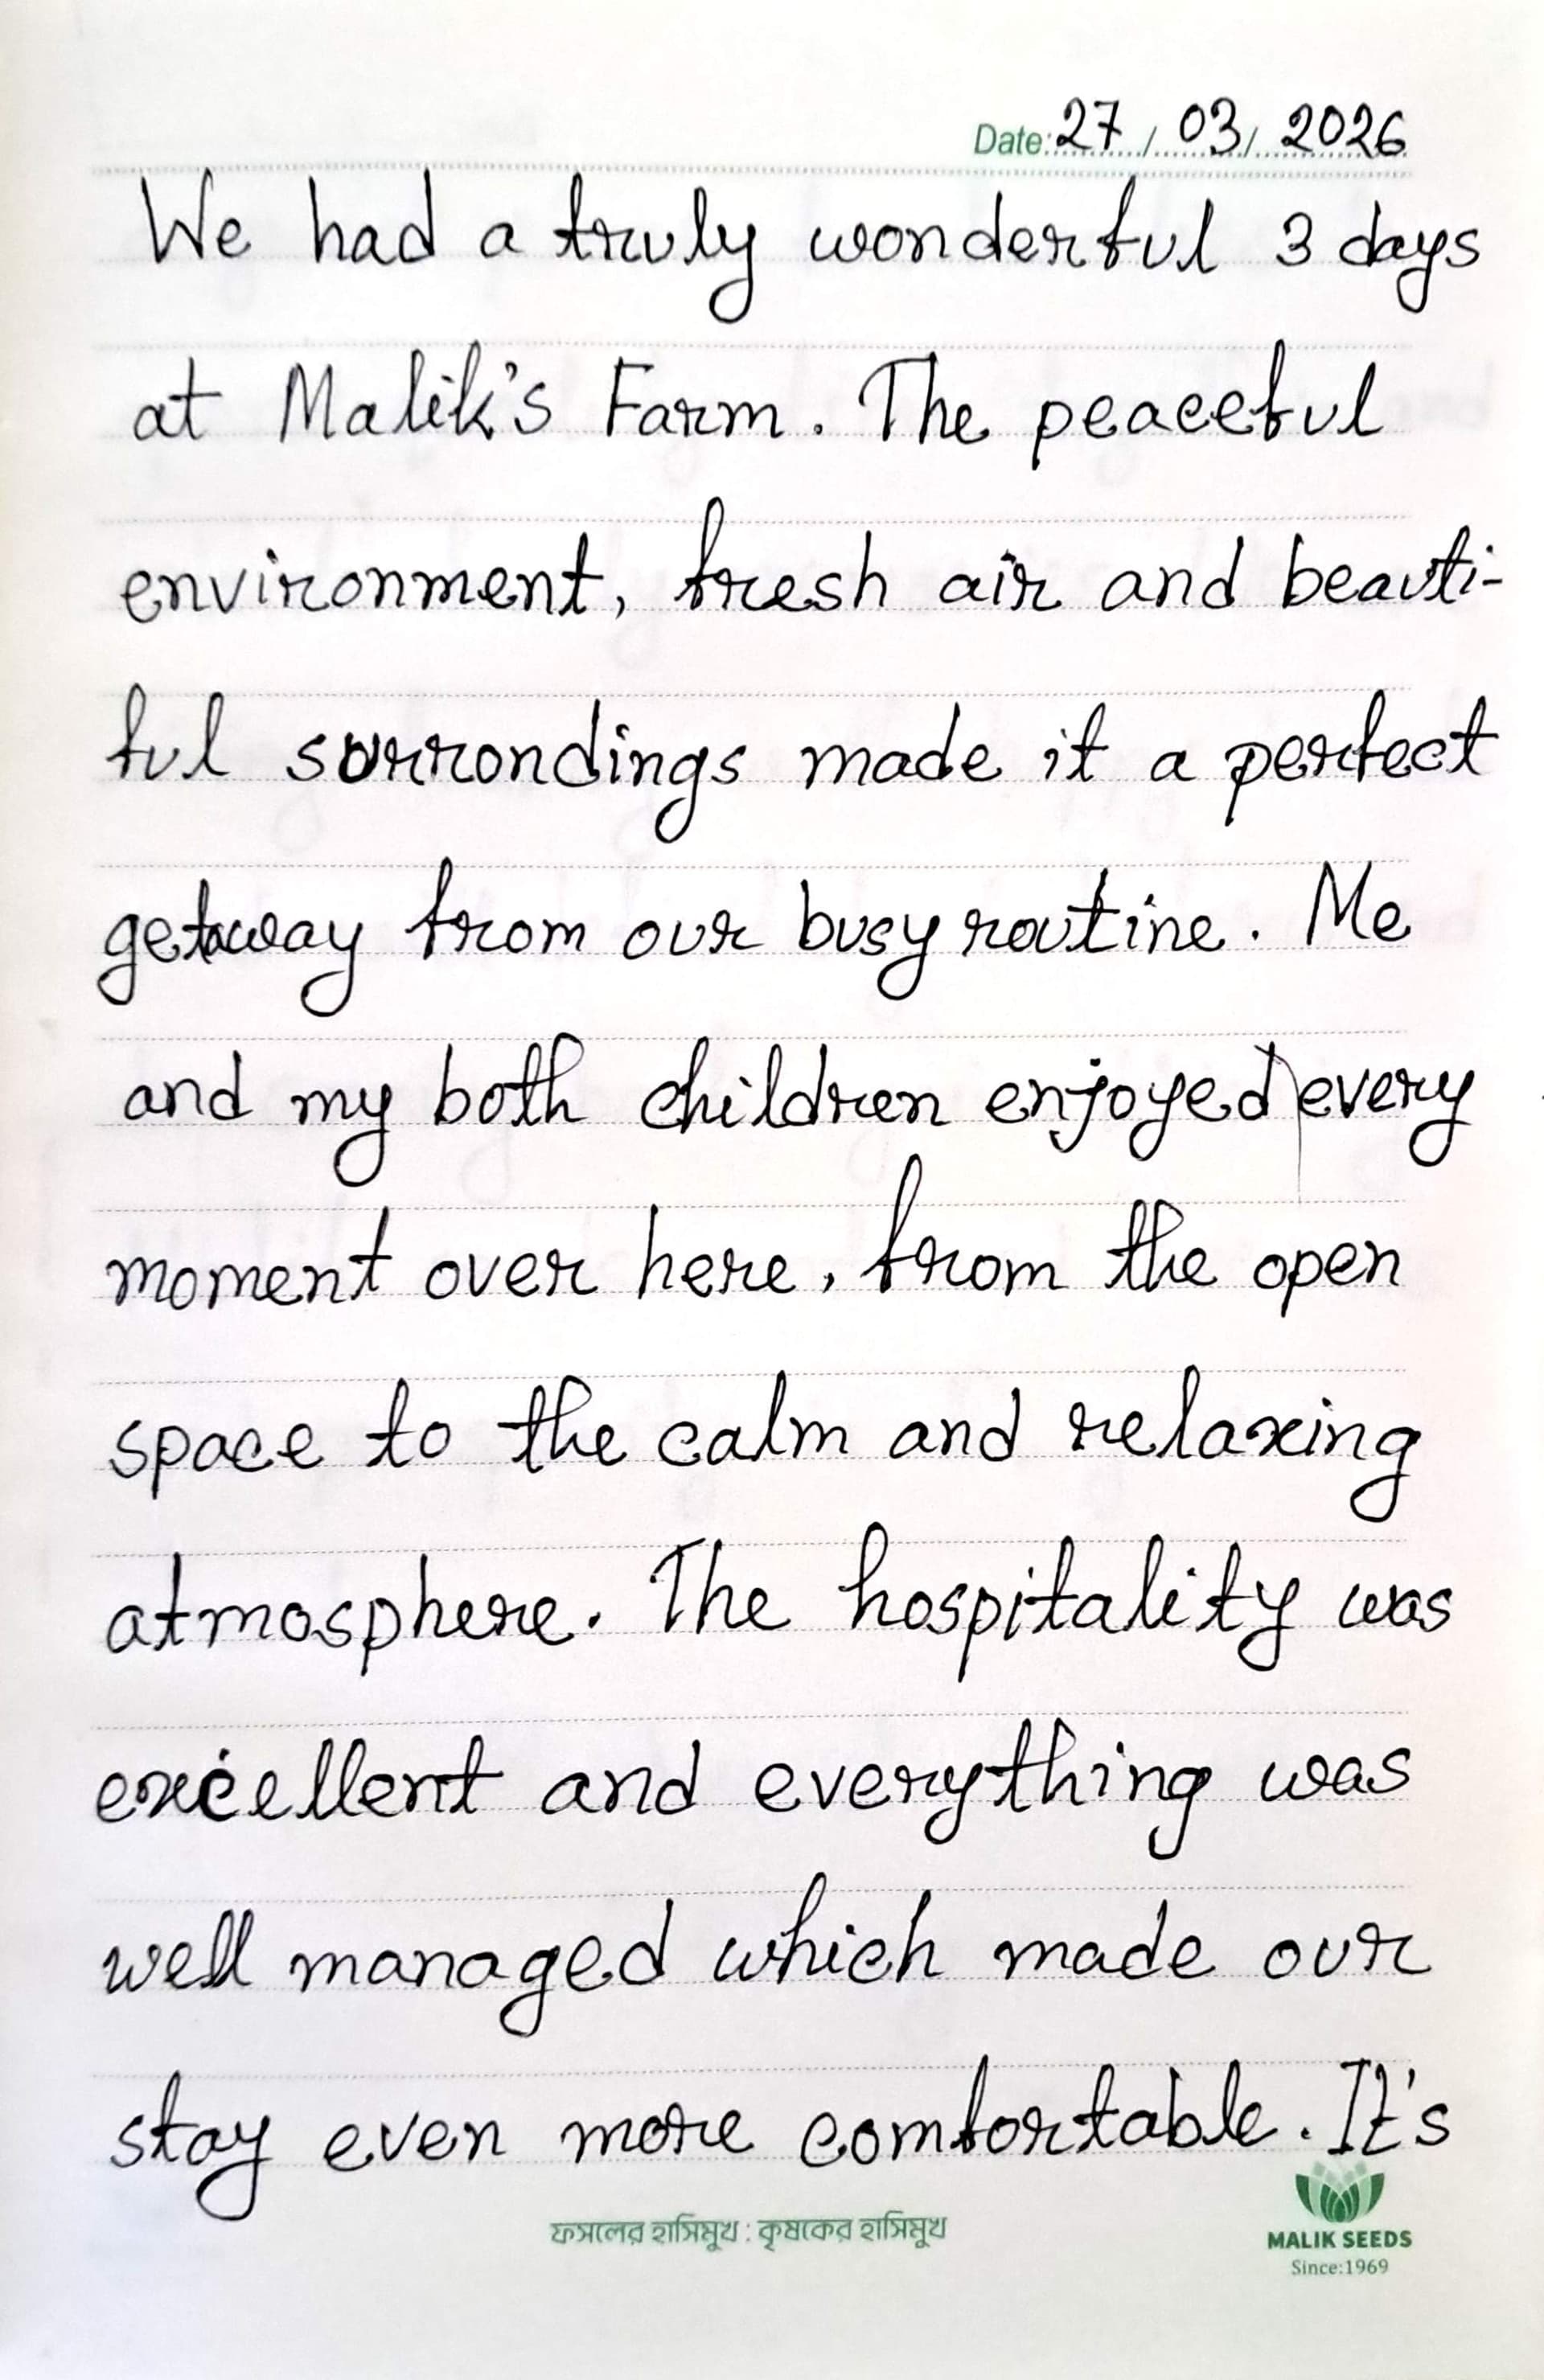 Date: 27 / 03 / 2026
We had a truly wonderful 3 days
at Malik's Farm. The peaceful
environment, fresh air and beauti-
ful surrondings made it a perfect
getaway from our busy routine. Me
and my both children enjoyed every
moment over here, from the open
space to the calm and relaxing
atmosphere. The hospitality was
excellent and everything was
well managed which made our
stay even more comfortable. It's
ফসলের হাসিমুখ : কৃষকের হাসিমুখ
MALIK SEEDS
Since:1969